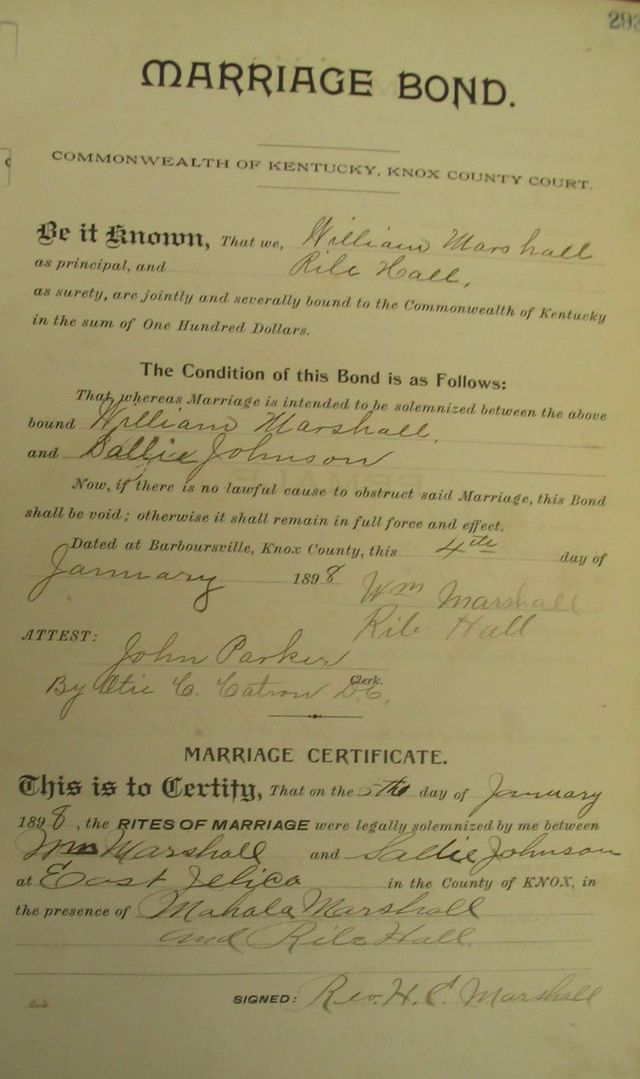 293
MARRIAGE BOND.
COMMONWEALTH OF KENTUCKY, KNOX COUNTY COURT.
Be it Known, That we, William Marshall
as principal, and Rile Hall,
as surety, are jointly and severally bound to the Commonwealth of Kentucky
in the sum of One Hundred Dollars.
The Condition of this Bond is as Follows:
That whereas Marriage is intended to be solemnized between the above
bound William Marshall,
and Sallie Johnson
Now, if there is no lawful cause to obstruct said Marriage, this Bond
shall be void; otherwise it shall remain in full force and effect.
Dated at Barboursville, Knox County, this 4th day of
January 1898 Wm Marshall
Rile Hall
ATTEST:
John Parker
Clerk.
By C. Catron D.C.
MARRIAGE CERTIFICATE.
This is to Certify, That on the 5th day of January
1898, the RITES OF MARRIAGE were legally solemnized by me between
Wm Marshall and Sallie Johnson
at East Jelico in the County of KNOX, in
the presence of Mahala Marshall
and Rile Hall.
SIGNED: Rev. H. C. Marshall